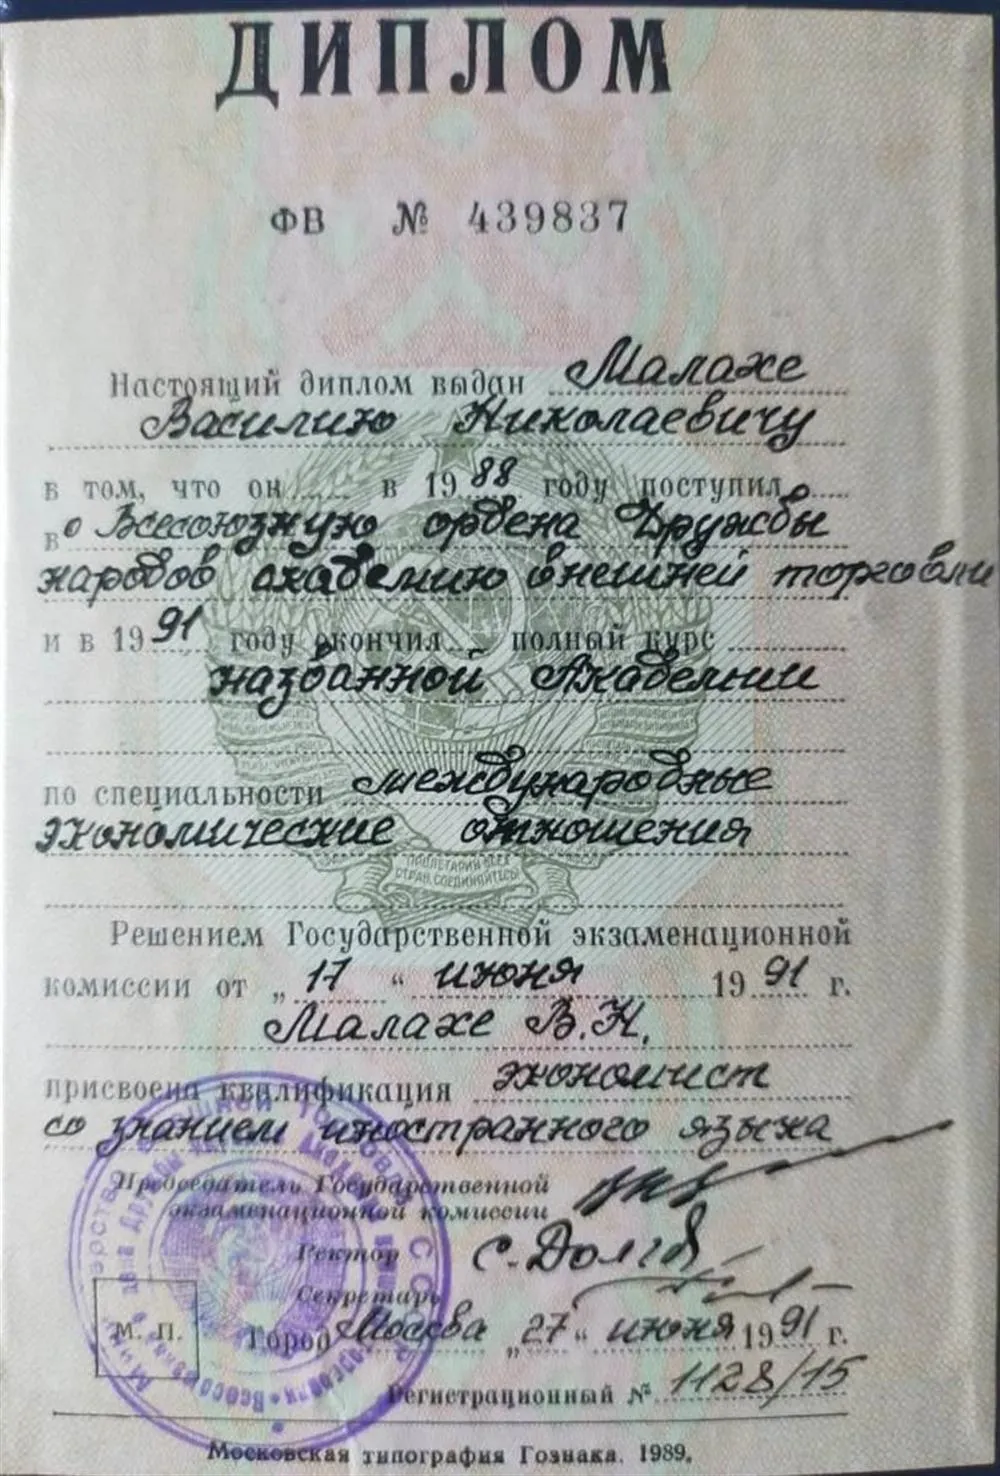 ДИПЛОМ
ФВ № 439837
Настоящий диплом выдан Малахе
Василию Николаевичу
в том, что он в 1988 году поступил
в Всесоюзную ордена Дружбы
народов академию внешней торговли
и в 1991 году окончил полный курс
названной Академии
по специальности международные
экономические отношения
ПРОЛЕТАРИИ ВСЕХ
СТРАН, СОЕДИНЯЙТЕСЬ!
Решением Государственной экзаменационной
комиссии от „17“ июня 1991 г.
Малахе В.Н.
присвоена квалификация экономист
со знанием иностранного языка
Председатель Государственной
экзаменационной комиссии
Ректор С. Долгов
Секретарь
М. П.
Город Москва „27“ июня 1991 г.
Регистрационный № 1128/15
Московская типография Гознака. 1989.